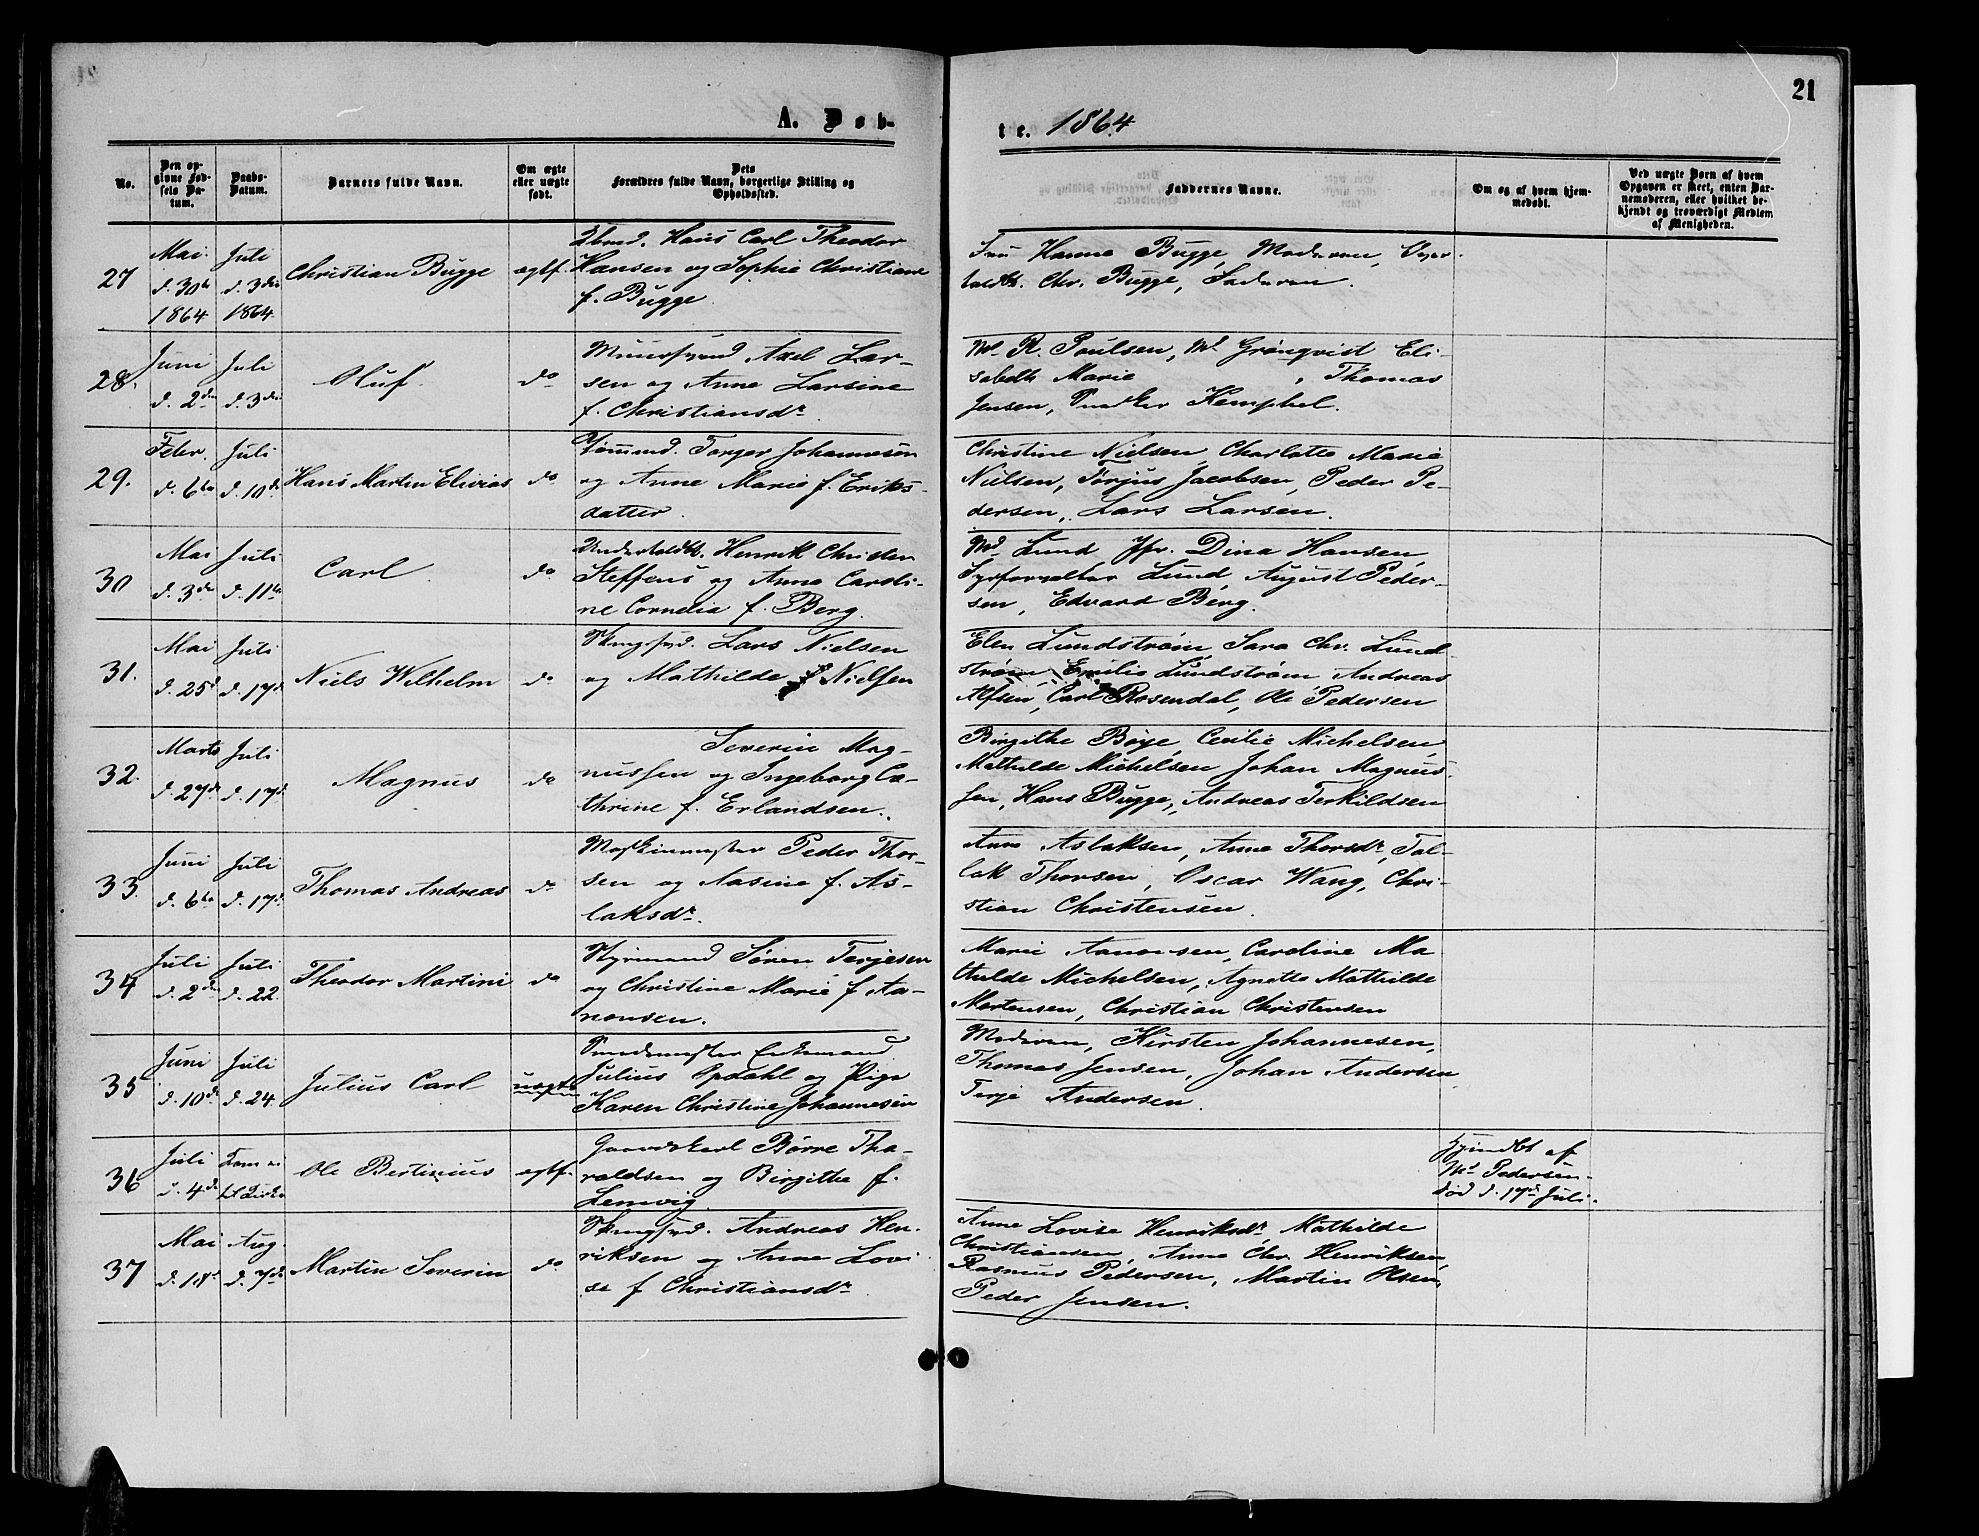 21
A. Døb-
te. 1864
No.
Den op-
givne Fød-
sels Da-
tum.
Daabs-
Datum.
Barnets fulde Navn.
Om ægte
eller uægte
født.
Dets
Forældres fulde Navn, borgerlige Stilling og
Opholdssted.
Faddernes Navne.
Om og af hvem hjem-
medøbt.
Ved uægte Børn af hvem
Opgaven er skeet, enten Bar-
nemoderen, eller hvilket be-
kjendt og troværdigt Medlem
af Menigheden.
27
Mai
d. 30te
1864
Juli
d. 3die
1864
Christian Bugge
egtf.
Hans Carl Theodor
Hansen og Sophie Christiane
f. Bugge
Fru Hanne Bugge, Moderen,
Chr. Bugge, Faderen.
28.
Juni
d. 2den
Juli
d. 3die
Oluf.
do
Axel Lar-
sen og Anne Larsine
f. Christiansdr.
Md. R. Poulsen, Md. Grönqvist Eli-
sabeth Marie , Thomas
Jensen, Snedker Kemphel.
29.
Febr.
d. 6te
Juli
d. 10de
Hans Martin Elivias
do
Sømand. Torger Johannesen
og Anne Marie f. Eriks-
datter.
Christine Nielsen, Charlotte Marie
Nielsen, Törjus Jacobsen, Peder Pe-
dersen, Lars Larsen.
30
Mai
d. 3de
Juli
d. 11te
Carl
do
Henrik Christen
Steffens og Anne Caroli-
ne Cornelia f. Berg.
Md. Lund Jfr. Dina Hansen,
Fyrforvalter Lund, August Peder-
sen, Edvard Berg.
31.
Mai
d. 25d
Juli
d. 17d
Niels Wilhelm
do
Lars Nielsen
og Mathilde f. Nielsen
Elen Lundström, Sara Chr. Lund-
ström, Emilie Lundström Andreas
Alfsen, Carl Rosendal, Ole Pedersen
32.
Marts
d. 27de
Juli
d. 17d
Magnus
do
Severin Mag-
nussen og Ingeborg Ca-
thrine f. Erlandsen.
Birgithe Bøye, Cecilie Michelsen
Mathilde Michelsen Johan Magnus-
sen, Hans Bugge, Andreas Terkildsen
33.
Juni
d. 6te
Juli
d. 17d
Thomas Andreas
do
Maskinmester Peder Thor-
sen og Aasine f. As-
laksdr.
Anne Aslaksen, Anne Thorsdr, Tal-
lak Thorsen, Oscar Wang, Chri-
stian Christensen.
34
Juli
d. 2de
Juli
d. 22
Theodor Martini
do
Styrmand Sören Terjesen
og Christine Marie f. Aa-
nonsen.
Marie Aanonsen, Caroline Ma
thilde Michelsen, Agnette Mathilde
Mortensen, Christian Christensen
35
Juni
d. 10de
Juli
d. 24.
Julius Carl
uægte
Enkemand
Julius Opdahl og Pige
Karen Christine Johannesen
Moderen, Kirsten Johannesen,
Thomas Jensen, Johan Andersen
Terje Andersen.
36
Juli
d. 4de
Kom ei
til Kirke
Ole Bertinius
egtf.
Gaardskarl Börre Tha-
raldsen og Birgithe f.
Lemvig
Hjemdbt af
Md Pedersen-
död d. 17de Juli.
37
Mai
d. 18d
Aug.
d. 7de
Martin Severin
do
Andreas Hen-
riksen og Anne Lovi
se f Christiansdr.
Anne Lovise Henriksdr, Mathilde
Christiansen, Anne Chr. Henriksen,
Rasmus Pedersen, Martin Olsen,
Peder Jensen.